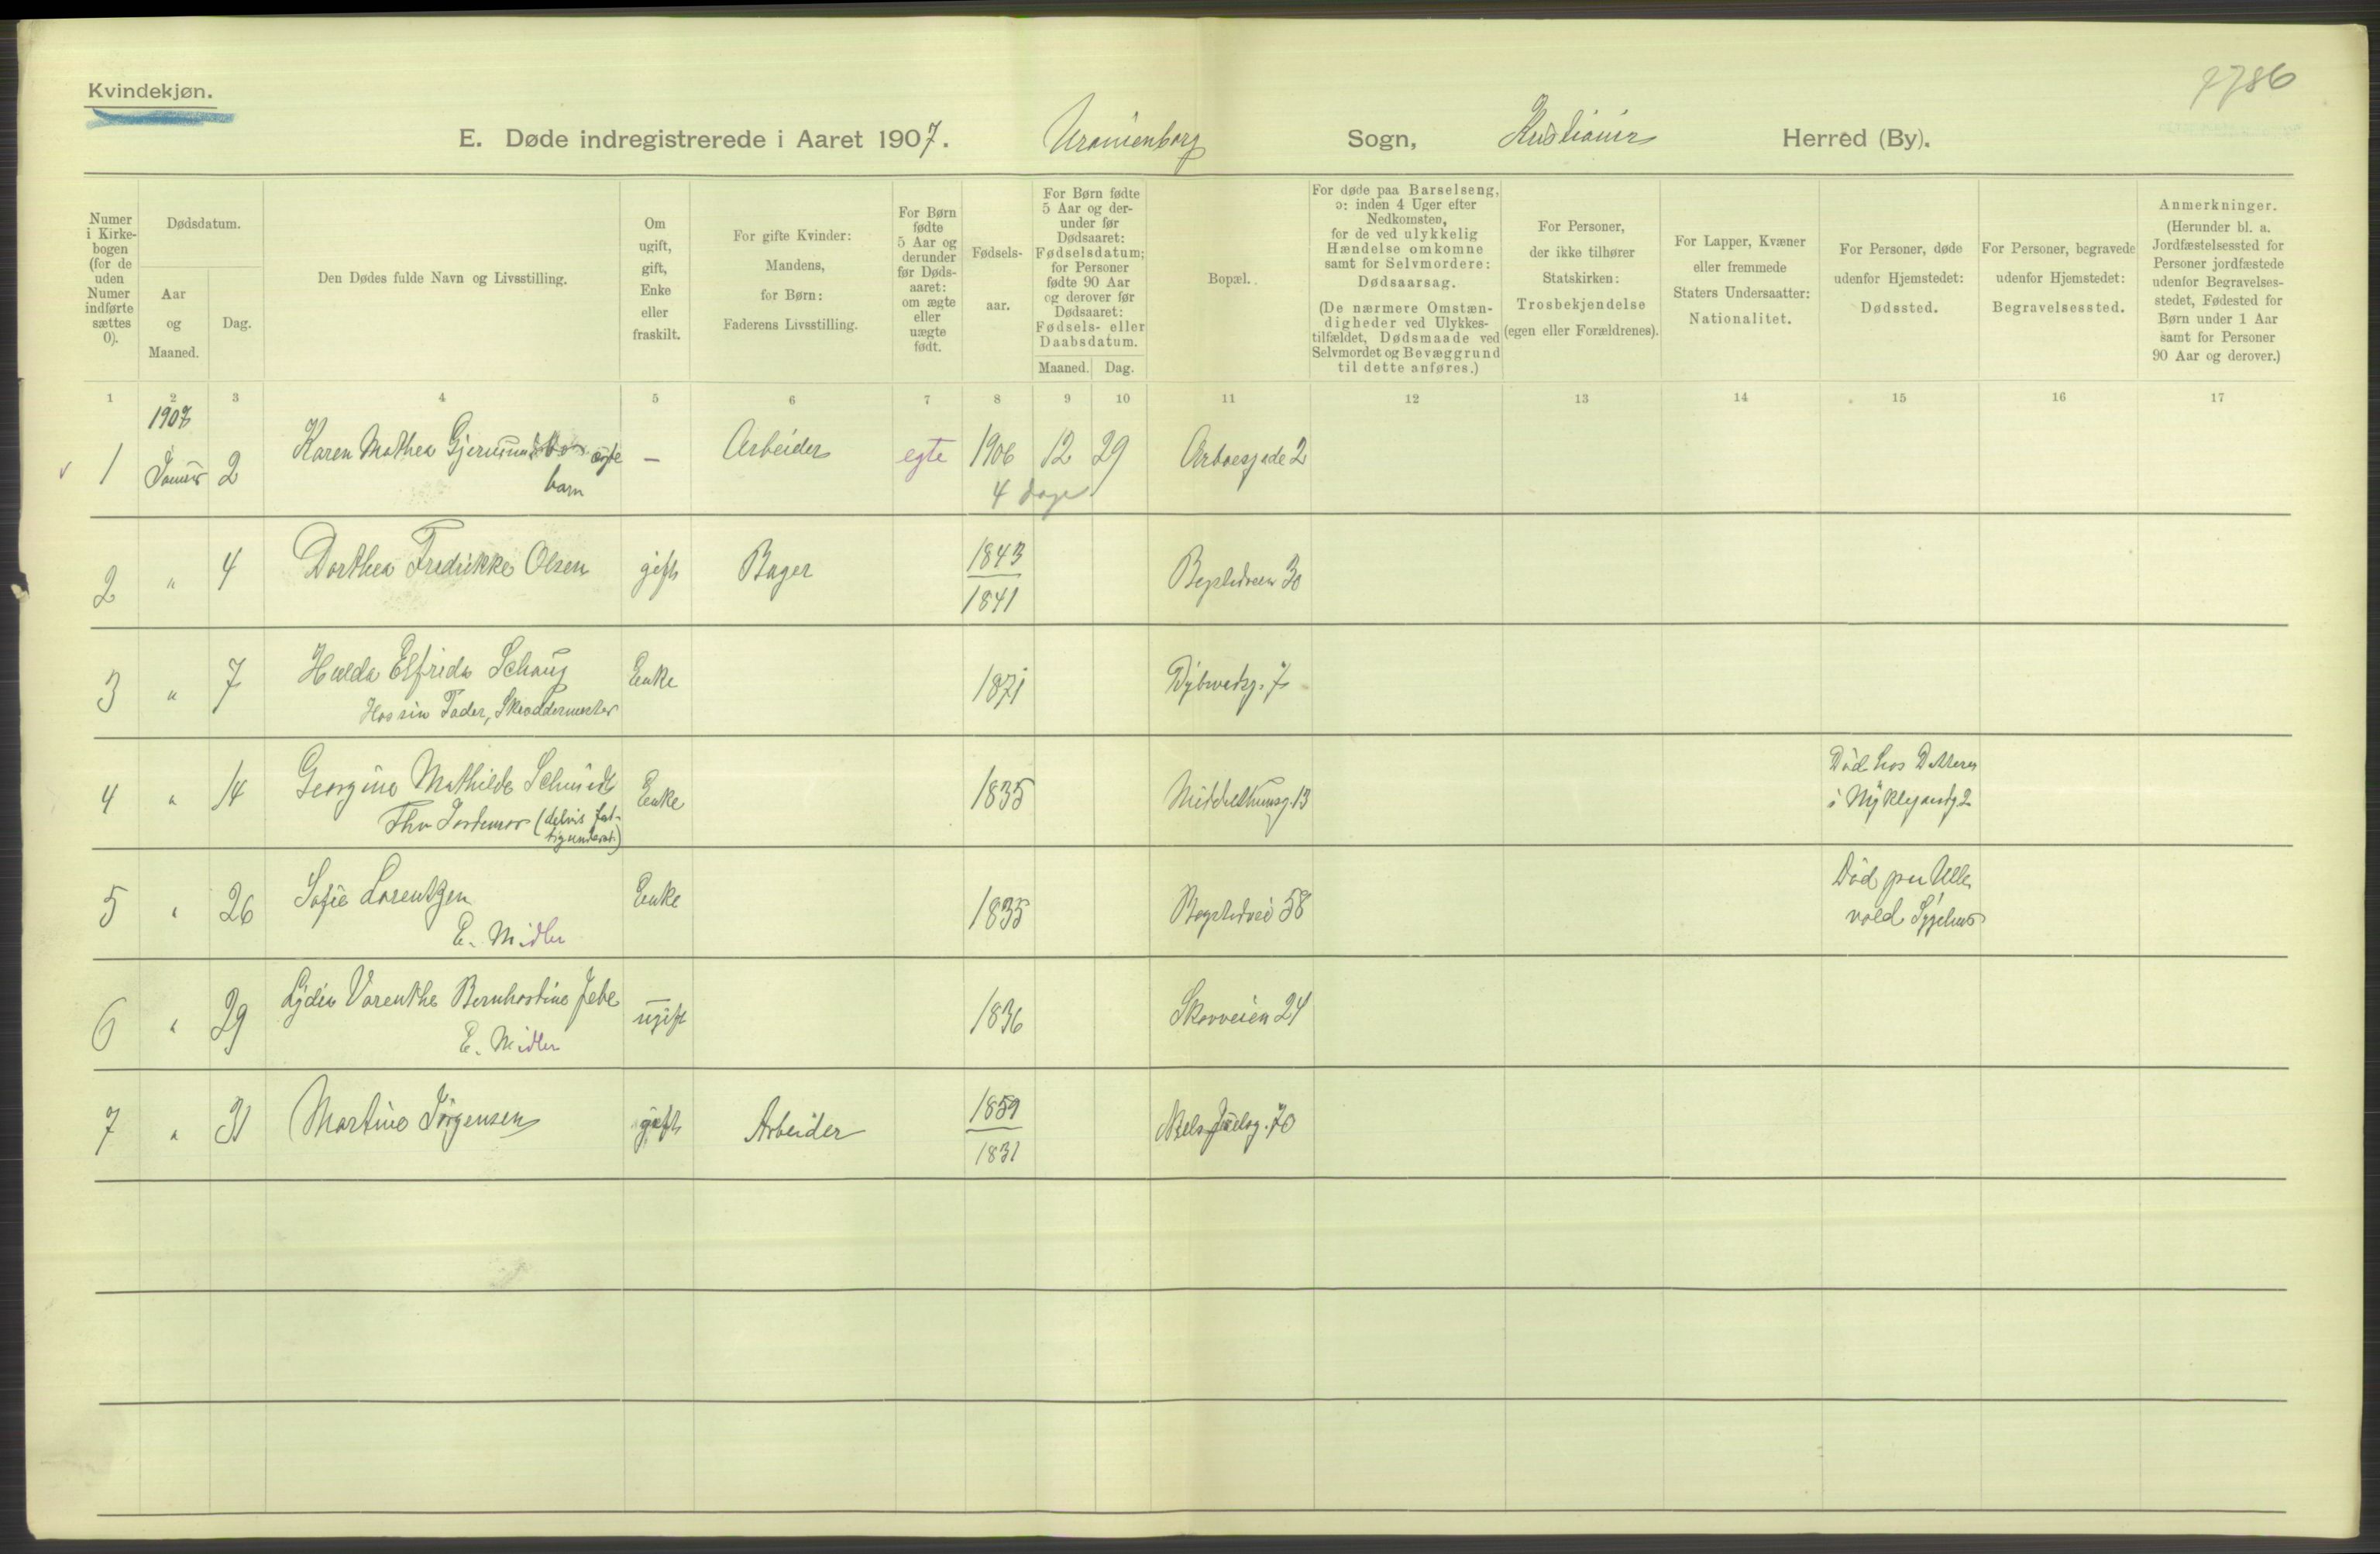 Kvindekjøn.
E. Døde indregistrerede i Aaret 1907. Uranienborg Sogn, Kristiania Herred (By).
Numer i Kirke-bogen (for de uden Numer indførte sættes 0).
Dødsdatum.
Aar og Maaned.
Dag.
Den Dødes fulde Navn og Livsstilling.
Om ugift, gift, Enke eller fraskilt.
For gifte Kvinder: Mandens, for Børn: Faderens Livsstilling.
For Børn fødte 5 Aar og derunder før Døds-aaret: om ægte eller uægte født.
Fødsels-aar.
For Børn fødte 5 Aar og der-under før Dødsaaret: Fødselsdatum; for Personer fødte 90 Aar og derover før Dødsaaret: Fødsels- eller Daabsdatum.
Maaned. Dag.
Bopæl.
For døde paa Barselseng, ɔ: inden 4 Uger efter Nedkomsten, for de ved ulykkelig Hændelse omkomne samt for Selvmordere: Dødsaarsag.
(De nærmere Omstæn-digheder ved Ulykkes-tilfældet, Dødsmaade ved Selvmordet og Bevæggrund til dette anføres.)
For Personer, der ikke tilhører Statskirken: Trosbekjendelse (egen eller Forældrenes).
For Lapper, Kvæner eller fremmede Staters Undersaatter: Nationalitet.
For Personer, døde udenfor Hjemstedet: Dødssted.
For Personer, begravede udenfor Hjemstedet: Begravelsessted.
Anmerkninger.
(Herunder bl. a. Jordfæstelsessted for Personer jordfæstede udenfor Begravelses-stedet, Fødested for Børn under 1 Aar samt for Personer 90 Aar og derover.)
1 2 3 4 5 6 7 8 9 10 11 12 13 14 15 16 17
1907
1 Januar 2 Karen Mathea ægte – Arbeider egte 1906 12 29
barn 4 dage
2 " 4 Dorthea Fredrikke Olsen gift Bager 1843 Bogstadveien 30
1841
3 " 7 Hulda Elfrida Schaug Enke 1871 Dybwadsg. 7
Hos sin Fader, Skræddermester
4 " 14 Georgine Mathilde Schmidt Enke 1835 Middelthunsg. 13 Død hos Datteren
Fhv Jordemor (delvis fat- i 2
tigunderst.)
5 " 26 Sofie Lorentzen Enke 1835 Bogstadvei 58 Død paa Ulle-
E. Midler vold Sygehus
6 " 29 Lydia Varenthe Bernhardine Jebe ugift 1836 Skovveien 24
E. Midler
7 " 31 Martine Jörgensen gift Arbeider 1859 Niels Juelsg. 70
1831